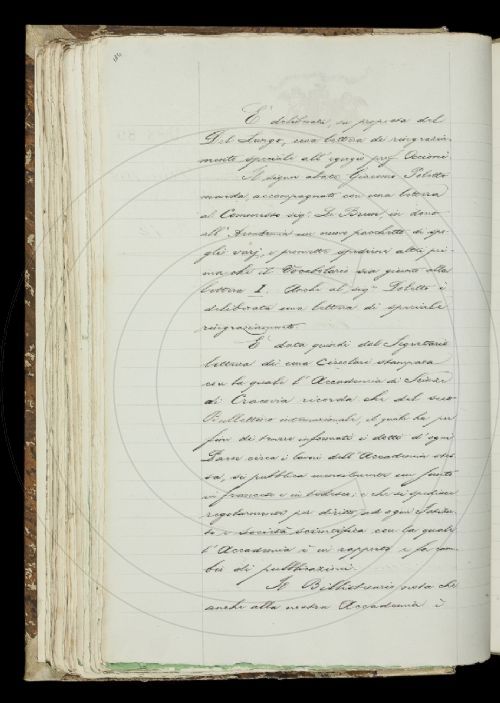 È deliberata, su proposta del
Del Lungo, una lettera di ringrazia-
mento speciale all'egregio prof. Occioni
Il signor abate Giacomo Poletto
manda, accompagnato con una lettera
al Commesso sig. Le Brun, in dono
all'Accademia un nuovo pacchetto di spo-
gli varj, e promette spedirne altri pri-
ma che il Vocabolario sia giunto alla
lettera I. Anche al sig. Poletto è
deliberata una lettera di speciale
ringraziamento.
È data quindi dal Segretario
lettura di una circolare stampata
con la quale l'Accademia di Scienze
di Cracovia ricorda che del suo
Bullettino internazionale, il quale ha per
fine di tenere informati i dotti d'ogni
Paese circa i lavori dell'Accademia stes-
sa, si pubblica mensilmente un fascicolo
in francese e in tedesco; e che si spedisce
regolarmente per diritto ad ogni Istitu-
to e società scientifica con la quale
l'Accademia è in rapporto e fa cam-
bio di pubblicazioni.
Il Bibliotecario nota che
anche alla nostra Accademia è